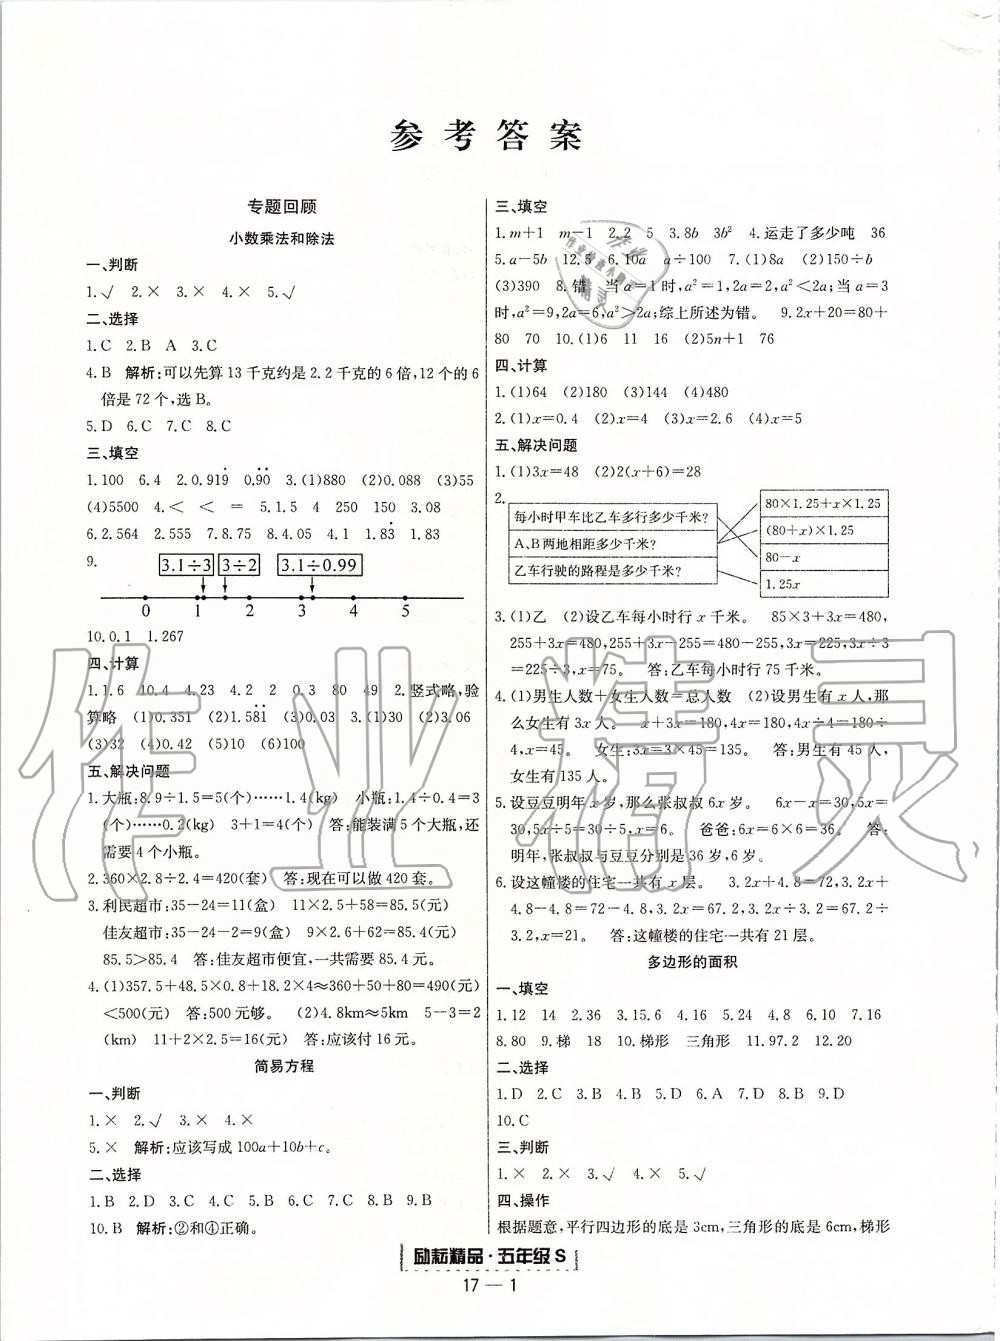 参考答案
专题回顾
小数乘法和除法
一、判断
1.√ 2.× 3.× 4.× 5.√
二、选择
1.C 2.B A 3.C
4.B 解析:可以先算13千克约是2.2千克的6倍,12个的6
倍是72个,选B。
5.D 6.C 7.C 8.C
三、填空
1.100 6.4 2.0.919̇ 0.9̇0̇ 3.(1)880 (2)0.088 (3)55
(4)5500 4.< < = 5.1.5 4 250 150 3.08
6.2.564 2.555 7.8.75 8.4.05 4.1 1.83̇ 1.83
9.
3.1÷3 3÷2 3.1÷0.99
0 1 2 3 4 5
10.0.1 1.267
四、计算
1.1.6 10.4 4.23 4.2 2 0.3 80 49 2.竖式略,验
算略 (1)0.351 (2)1.58̇1̇ (3)0.03 3.(1)30 (2)3.06
(3)32 (4)0.42 (5)10 (6)100
五、解决问题
1.大瓶:8.9÷1.5=5(个)……1.4(kg) 小瓶:1.4÷0.4=3
(个)……0.2(kg) 3+1=4(个) 答:能装满5个大瓶,还
需要4个小瓶。
2.360×2.8÷2.4=420(套) 答:现在可以做420套。
3.利民超市:35-24=11(盒) 11×2.5+58=85.5(元)
佳友超市:35-24-2=9(盒) 9×2.6+62=85.4(元)
85.5>85.4 答:佳友超市便宜,一共需要85.4元。
4.(1)357.5+48.5×0.8+18.2×4≈360+50+80=490(元)
<500(元) 答:500元够。 (2)4.8km≈5km 5-3=2
(km) 11+2×2.5=16(元) 答:应该付16元。
简易方程
一、判断
1.× 2.√ 3.× 4.×
5.× 解析:应该写成100a+10b+c。
二、选择
1.B 2.D 3.C 4.C 5.B 6.C 7.C 8.B 9.B
10.B 解析:②和④正确。
三、填空
1.m+1 m-1 2.2 5 3.8b 3b² 4.运走了多少吨 36
5.a-5b 12.5 6.10a a÷100 7.(1)8a (2)150÷b
(3)390 8.错 当a=1时,a²=1,2a=2,a²<2a;当a=3
时,a²=9,2a=6,a²>2a;综上所述为错。 9.2x+20=80+
80 70 10.(1)6 11 16 (2)5n+1 76
四、计算
1.(1)64 (2)180 (3)144 (4)480
2.(1)x=0.4 (2)x=4 (3)x=2.6 (4)x=5
五、解决问题
1.(1)3x=48 (2)2(x+6)=28
2.
每小时甲车比乙车多行多少千米?
A、B两地相距多少千米?
乙车行驶的路程是多少千米?
80×1.25+x×1.25
(80+x)×1.25
80-x
1.25x
3.(1)乙 (2)设乙车每小时行x千米。 85×3+3x=480,
255+3x=480,255+3x-255=480-255,3x=225,3x÷3
=225÷3,x=75。 答:乙车每小时行75千米。
4.(1)男生人数+女生人数=总人数 (2)设男生有x人,那
么女生有3x人。 x+3x=180,4x=180,4x÷4=180÷
4,x=45。 女生:3x=3×45=135。 答:男生有45人,
女生有135人。
5.设豆豆明年x岁,那么张叔叔6x岁。 6x-x=30,5x=
30,5x÷5=30÷5,x=6。 爸爸:6x=6×6=36。 答:
明年,张叔叔与豆豆分别是36岁,6岁。
6.设这幢楼的住宅一共有x层。 3.2x+4.8=72,3.2x+
4.8-4.8=72-4.8,3.2x=67.2,3.2x÷3.2=67.2÷
3.2,x=21。 答:这幢楼的住宅一共有21层。
多边形的面积
一、填空
1.12 14 2.36 3.15.6 4.16 5.24 4.8 6.10 7.16
8.80 9.梯 18 10.梯形 三角形 11.97.2 12.20
二、选择
1.D 2.C 3.B 4.C 5.B 6.A 7.D 8.D 9.B
10.C
三、判断
1.× 2.× 3.√ 4.× 5.√
四、操作
根据题意,平行四边形的底是3cm,三角形的底是6cm,梯形
励耘精品·五年级S
17—1
作业精灵